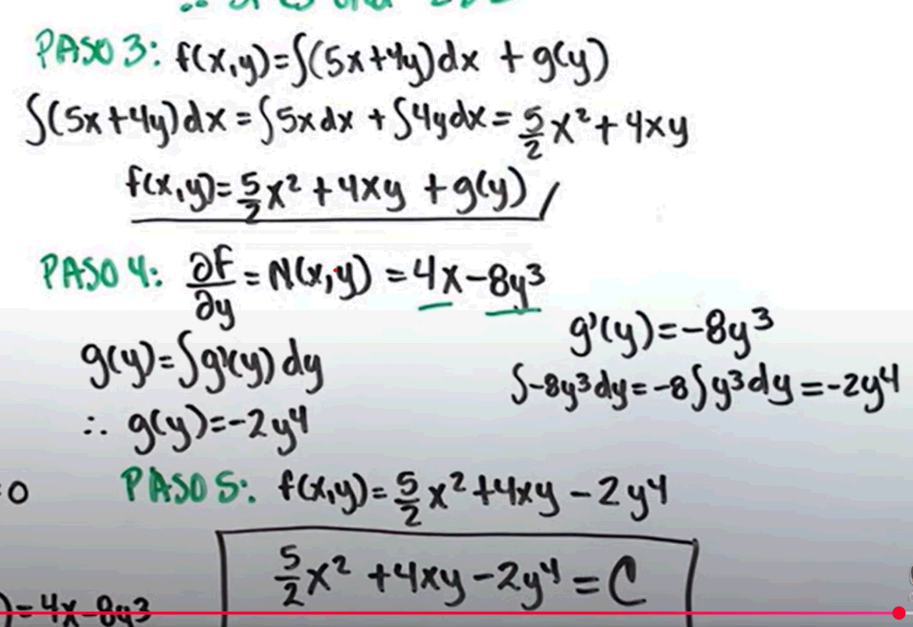 PASO 3: f(x,y)=∫(5x+4y)dx + g(y)
∫(5x+4y)dx = ∫5xdx + ∫4ydx = 5/2 x² + 4xy
f(x,y) = 5/2 x² + 4xy + g(y)
PASO 4: ∂F/∂y = N(x,y) = 4x-8y³
g'(y) = -8y³
g(y) = ∫g'(y)dy
∫-8y³dy = -8∫y³dy = -2y⁴
∴ g(y) = -2y⁴
=0
PASO 5: f(x,y) = 5/2 x² + 4xy - 2y⁴
5/2 x² + 4xy - 2y⁴ = C
)=4x-8y³